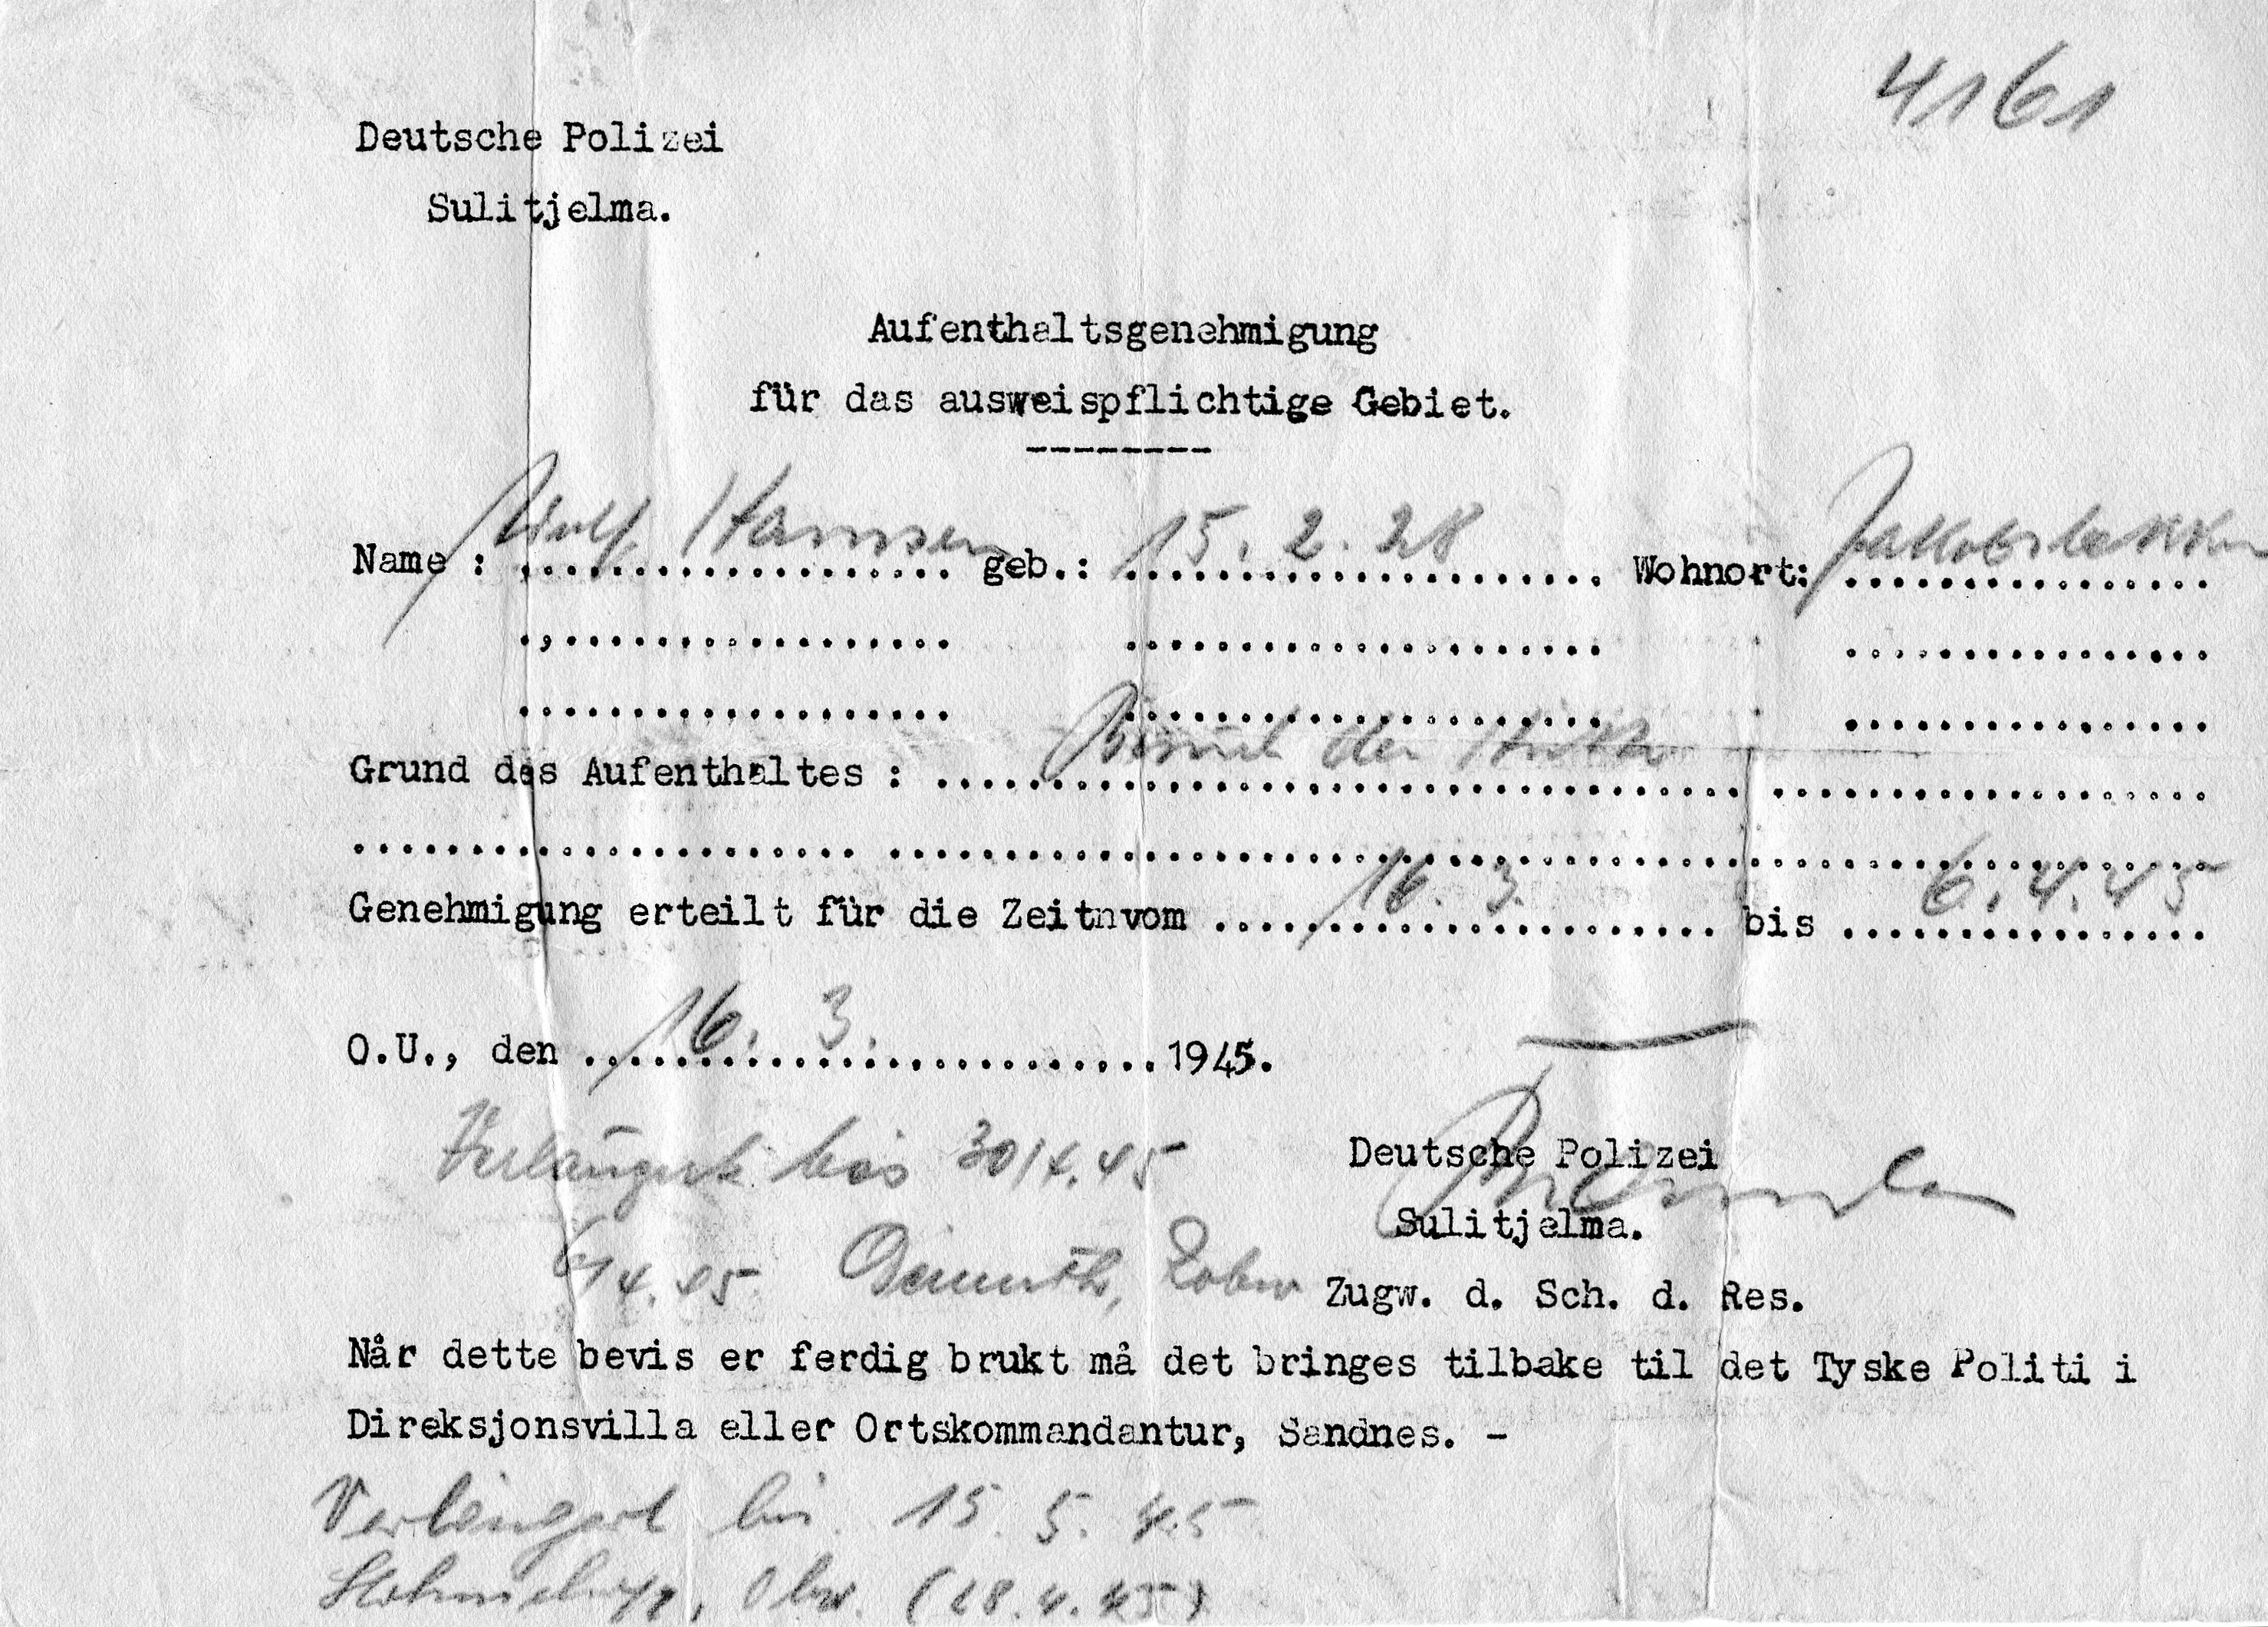 4161
Deutsche Polizei
Sulitjelma.
Aufenthaltsgenehmigung
für das ausweispflichtige Gebiet.
--------
Name : Adolf Hanssen geb.: 15. 2. 28 Wohnort: Jakobsbakken
Grund des Aufenthaltes : Besuch der
Genehmigung erteilt für die Zeitnvom 16. 3. bis 6. 4. 45
O.U., den 16. 3. 1945.
Verlängert bis 30/4. 45
Deutsche Polizei
Sulitjelma.
6/4. 45
Zugw. d. Sch. d. Res.
Når dette bevis er ferdig brukt må det bringes tilbake til det Tyske Politi i
Direksjonsvilla eller Ortskommandantur, Sandnes. -
Verlängert bis. 15. 5. 45
(28. 4. 45)